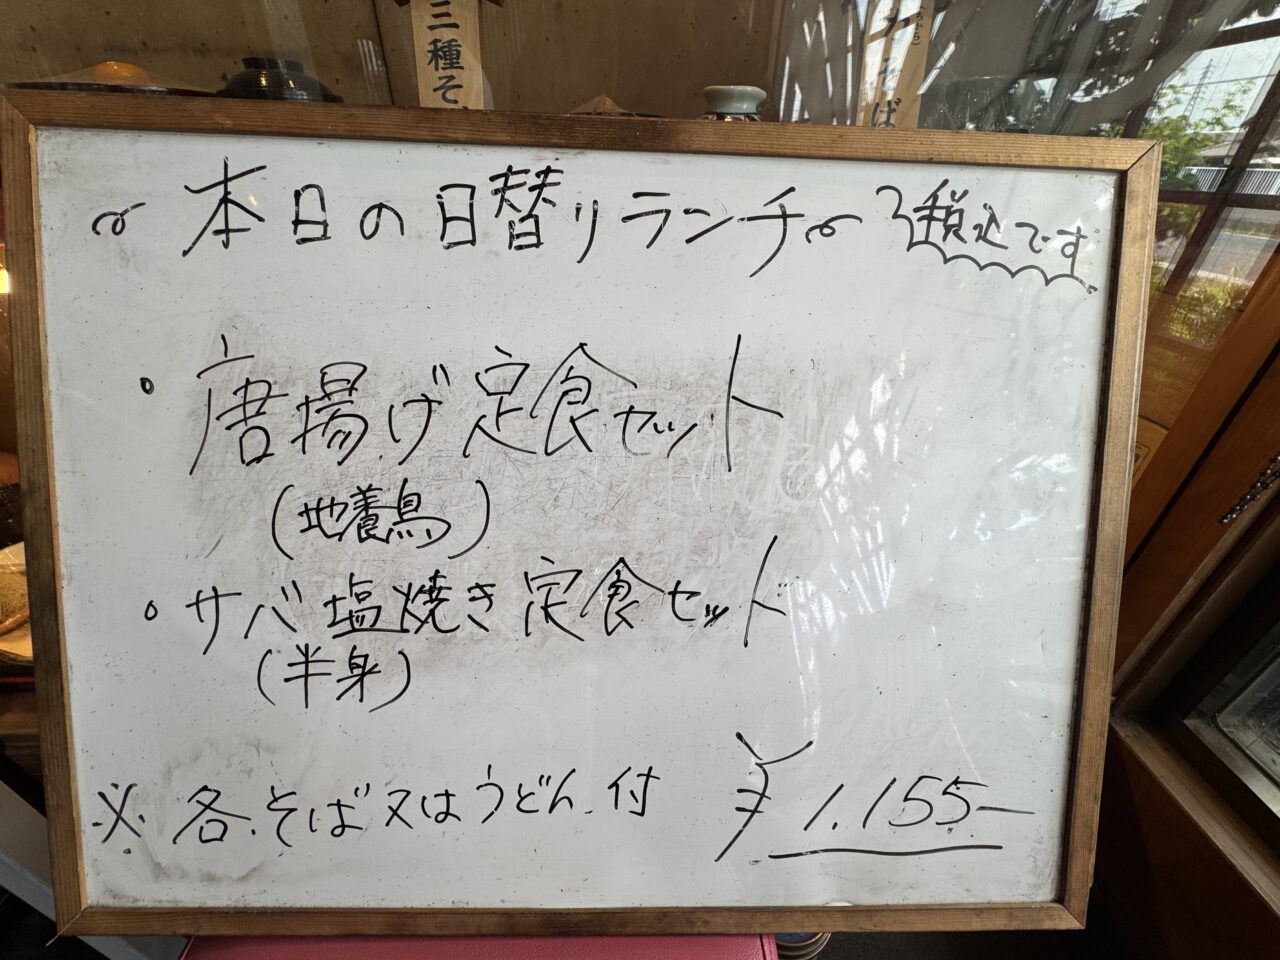 三種そ
力そば
本日の日替りランチ 税込です
・唐揚げ定食セット
(地養鳥)
・サバ塩焼き定食セット
(半身)
※ 各そば又はうどん付 ¥1.155-